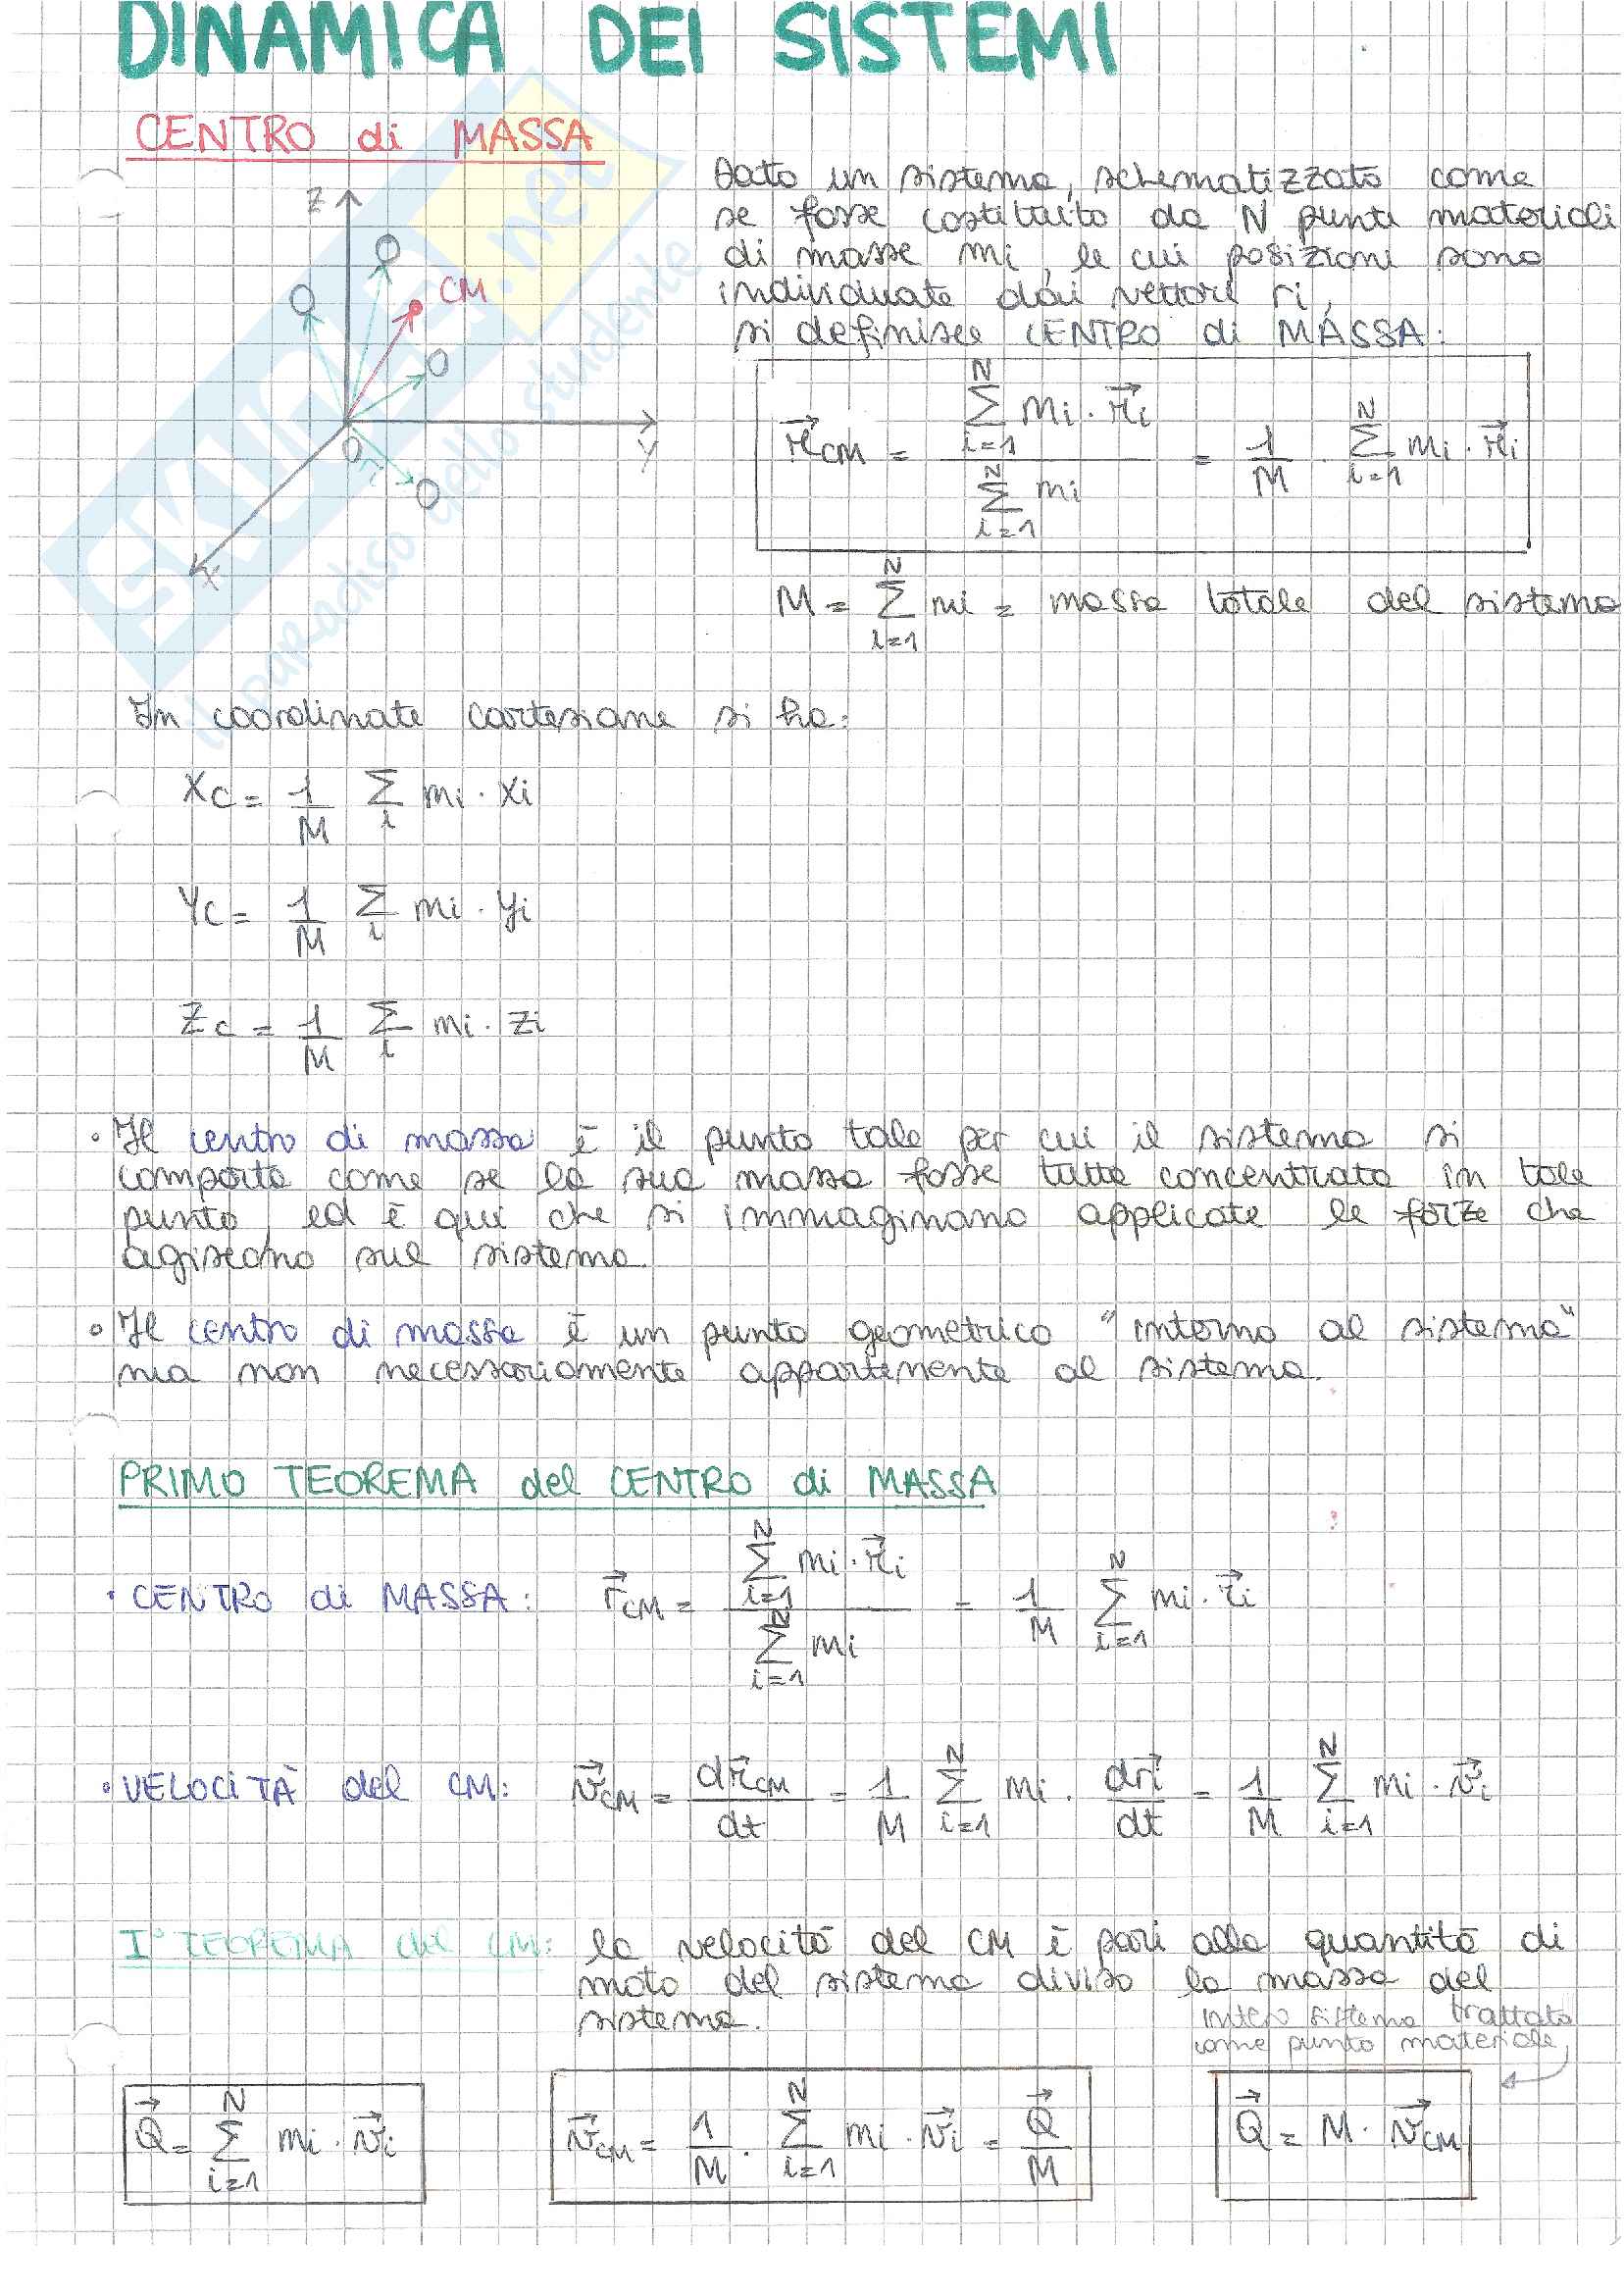 DINAMICA DEI SISTEMI
CENTRO di MASSA
Z
CM
Y
O
ri
X
Dato un sistema, schematizzato come
se fosse costituito da N punti materiali
di masse mi, le cui posizioni sono
individuate dai vettori ri,
si definisce CENTRO di MASSA:
r⃗CM = (∑_{i=1}^{N} mi · r⃗i) / (∑_{i=1}^{N} mi) = 1/M · ∑_{i=1}^{N} mi · r⃗i
M = ∑_{i=1}^{N} mi = massa totale del sistema
In coordinate cartesiane si ha:
Xc = 1/M ∑_i mi · xi
Yc = 1/M ∑_i mi · yi
Zc = 1/M ∑_i mi · zi
• Il centro di massa è il punto tale per cui il sistema si
comporta come se la sua massa fosse tutta concentrata in tale
punto, ed è qui che si immaginano applicate le forze che
agiscono sul sistema.
• Il centro di massa è un punto geometrico "interno al sistema"
ma non necessariamente appartenente al sistema.
PRIMO TEOREMA del CENTRO di MASSA
• CENTRO di MASSA: r⃗CM = (∑_{i=1}^{N} mi · r⃗i) / (∑_{i=1}^{N} mi) = 1/M ∑_{i=1}^{N} mi · r⃗i
• VELOCITÀ del CM: v⃗CM = dr⃗CM/dt = 1/M ∑_{i=1}^{N} mi · dr⃗i/dt = 1/M ∑_{i=1}^{N} mi · v⃗i
I° TEOREMA del CM: la velocità del CM è pari alla quantità di
moto del sistema diviso la massa del
sistema.
intero sistema trattato
come punto materiale
Q⃗ = ∑_{i=1}^{N} mi · v⃗i
v⃗CM = 1/M · ∑_{i=1}^{N} mi · v⃗i = Q⃗/M
Q⃗ = M · v⃗CM
SKUOLA.net
il paradiso dello studente